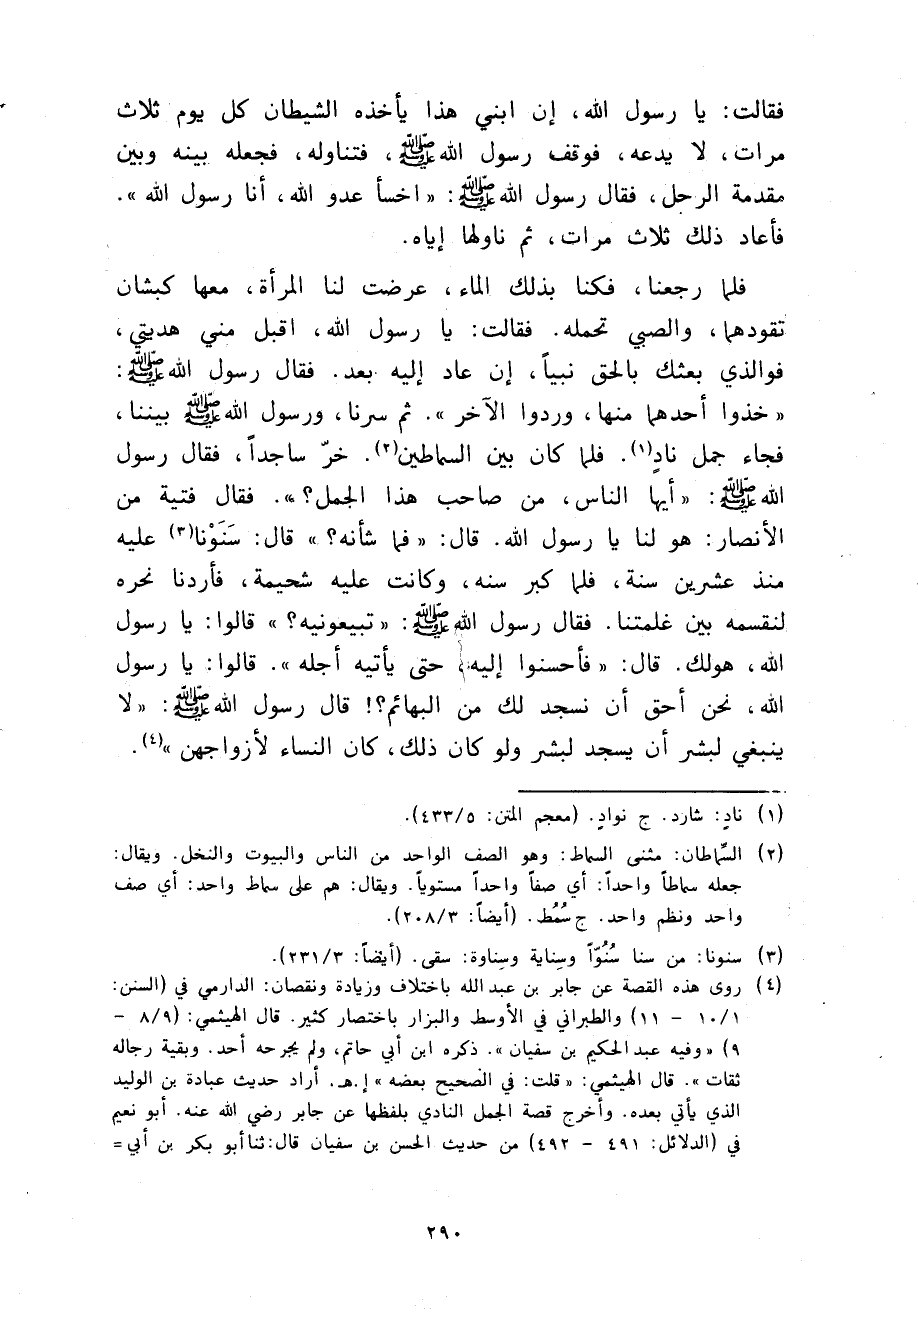 فقالت: يا رسول الله، إن ابني هذا يأخذه الشيطان كل يوم ثلاث
مرات، لا يدعه، فوقف رسول الله ﷺ، فتناوله، فجعله بينه وبين
مقدمة الرحل، فقال رسول الله ﷺ: « اخسأ عدو الله، أنا رسول الله ».
فأعاد ذلك ثلاث مرات، ثم ناولها إياه.
فلما رجعنا، فكنا بذلك الماء، عرضت لنا المرأة، معها كبشان
تقودهما، والصبي تحمله. فقالت: يا رسول الله، اقبل مني هديتي،
فوالذي بعثك بالحق نبياً، إن عاد إليه بعد. فقال رسول الله ﷺ:
« خذوا أحدهما منها، وردوا الآخر ». ثم سرنا، ورسول الله ﷺ بيننا،
فجاء جمل نادٍ(١). فلما كان بين السماطين(٢). خرّ ساجداً، فقال رسول
الله ﷺ: « أيها الناس، من صاحب هذا الجمل؟ ». فقال فتية من
الأنصار: هو لنا يا رسول الله. قال: « فما شأنه؟ » قال: سَنَوْنا(٣) عليه
منذ عشرين سنة، فلما كبر سنه، وكانت عليه شحيمة، فأردنا نحره
لنقسمه بين غلمتنا. فقال رسول الله ﷺ: « تبيعونيه؟ » قالوا: يا رسول
الله، هولك. قال: « فأحسنوا إليه حتى يأتيه أجله ». قالوا: يا رسول
الله، نحن أحق أن نسجد لك من البهائم؟! قال رسول الله ﷺ: « لا
ينبغي لبشر أن يسجد لبشر ولو كان ذلك، كان النساء لأزواجهن »(٤).
(١) نادٍ: شارد. ج نوادٍ. (معجم المتن: ٤٣٣/٥).
(٢) السِّماطان: مثنى السماط: وهو الصف الواحد من الناس والبيوت والنخل. ويقال:
جعله سماطاً واحداً: أي صفاً واحداً مستوياً. ويقال: هم على سماط واحد: أي صف
واحد ونظم واحد. ج سُمُط. (أيضاً: ٢٠٨/٣).
(٣) سنونا: من سنا سُنُوّاً وسِناية وسِناوة: سقى. (أيضاً: ٢٣١/٣).
(٤) روى هذه القصة عن جابر بن عبد الله باختلاف وزيادة ونقصان: الدارمي في (السنن:
١٠/١ - ١١) والطبراني في الأوسط والبزار باختصار كثير. قال الهيثمي: (٨/٩ -
٩) « وفيه عبد الحكيم بن سفيان ». ذكره ابن أبي حاتم، ولم يجرحه أحد. وبقية رجاله
ثقات ». قال الهيثمي: « قلت: في الصحيح بعضه » إ.هـ. أراد حديث عبادة بن الوليد
الذي يأتي بعده. وأخرج قصة الجمل النادي بلفظها عن جابر رضي الله عنه. أبو نعيم
في (الدلائل: ٤٩١ - ٤٩٢) من حديث الحسن بن سفيان قال: ثنا أبو بكر بن أبي =
٢٩٠